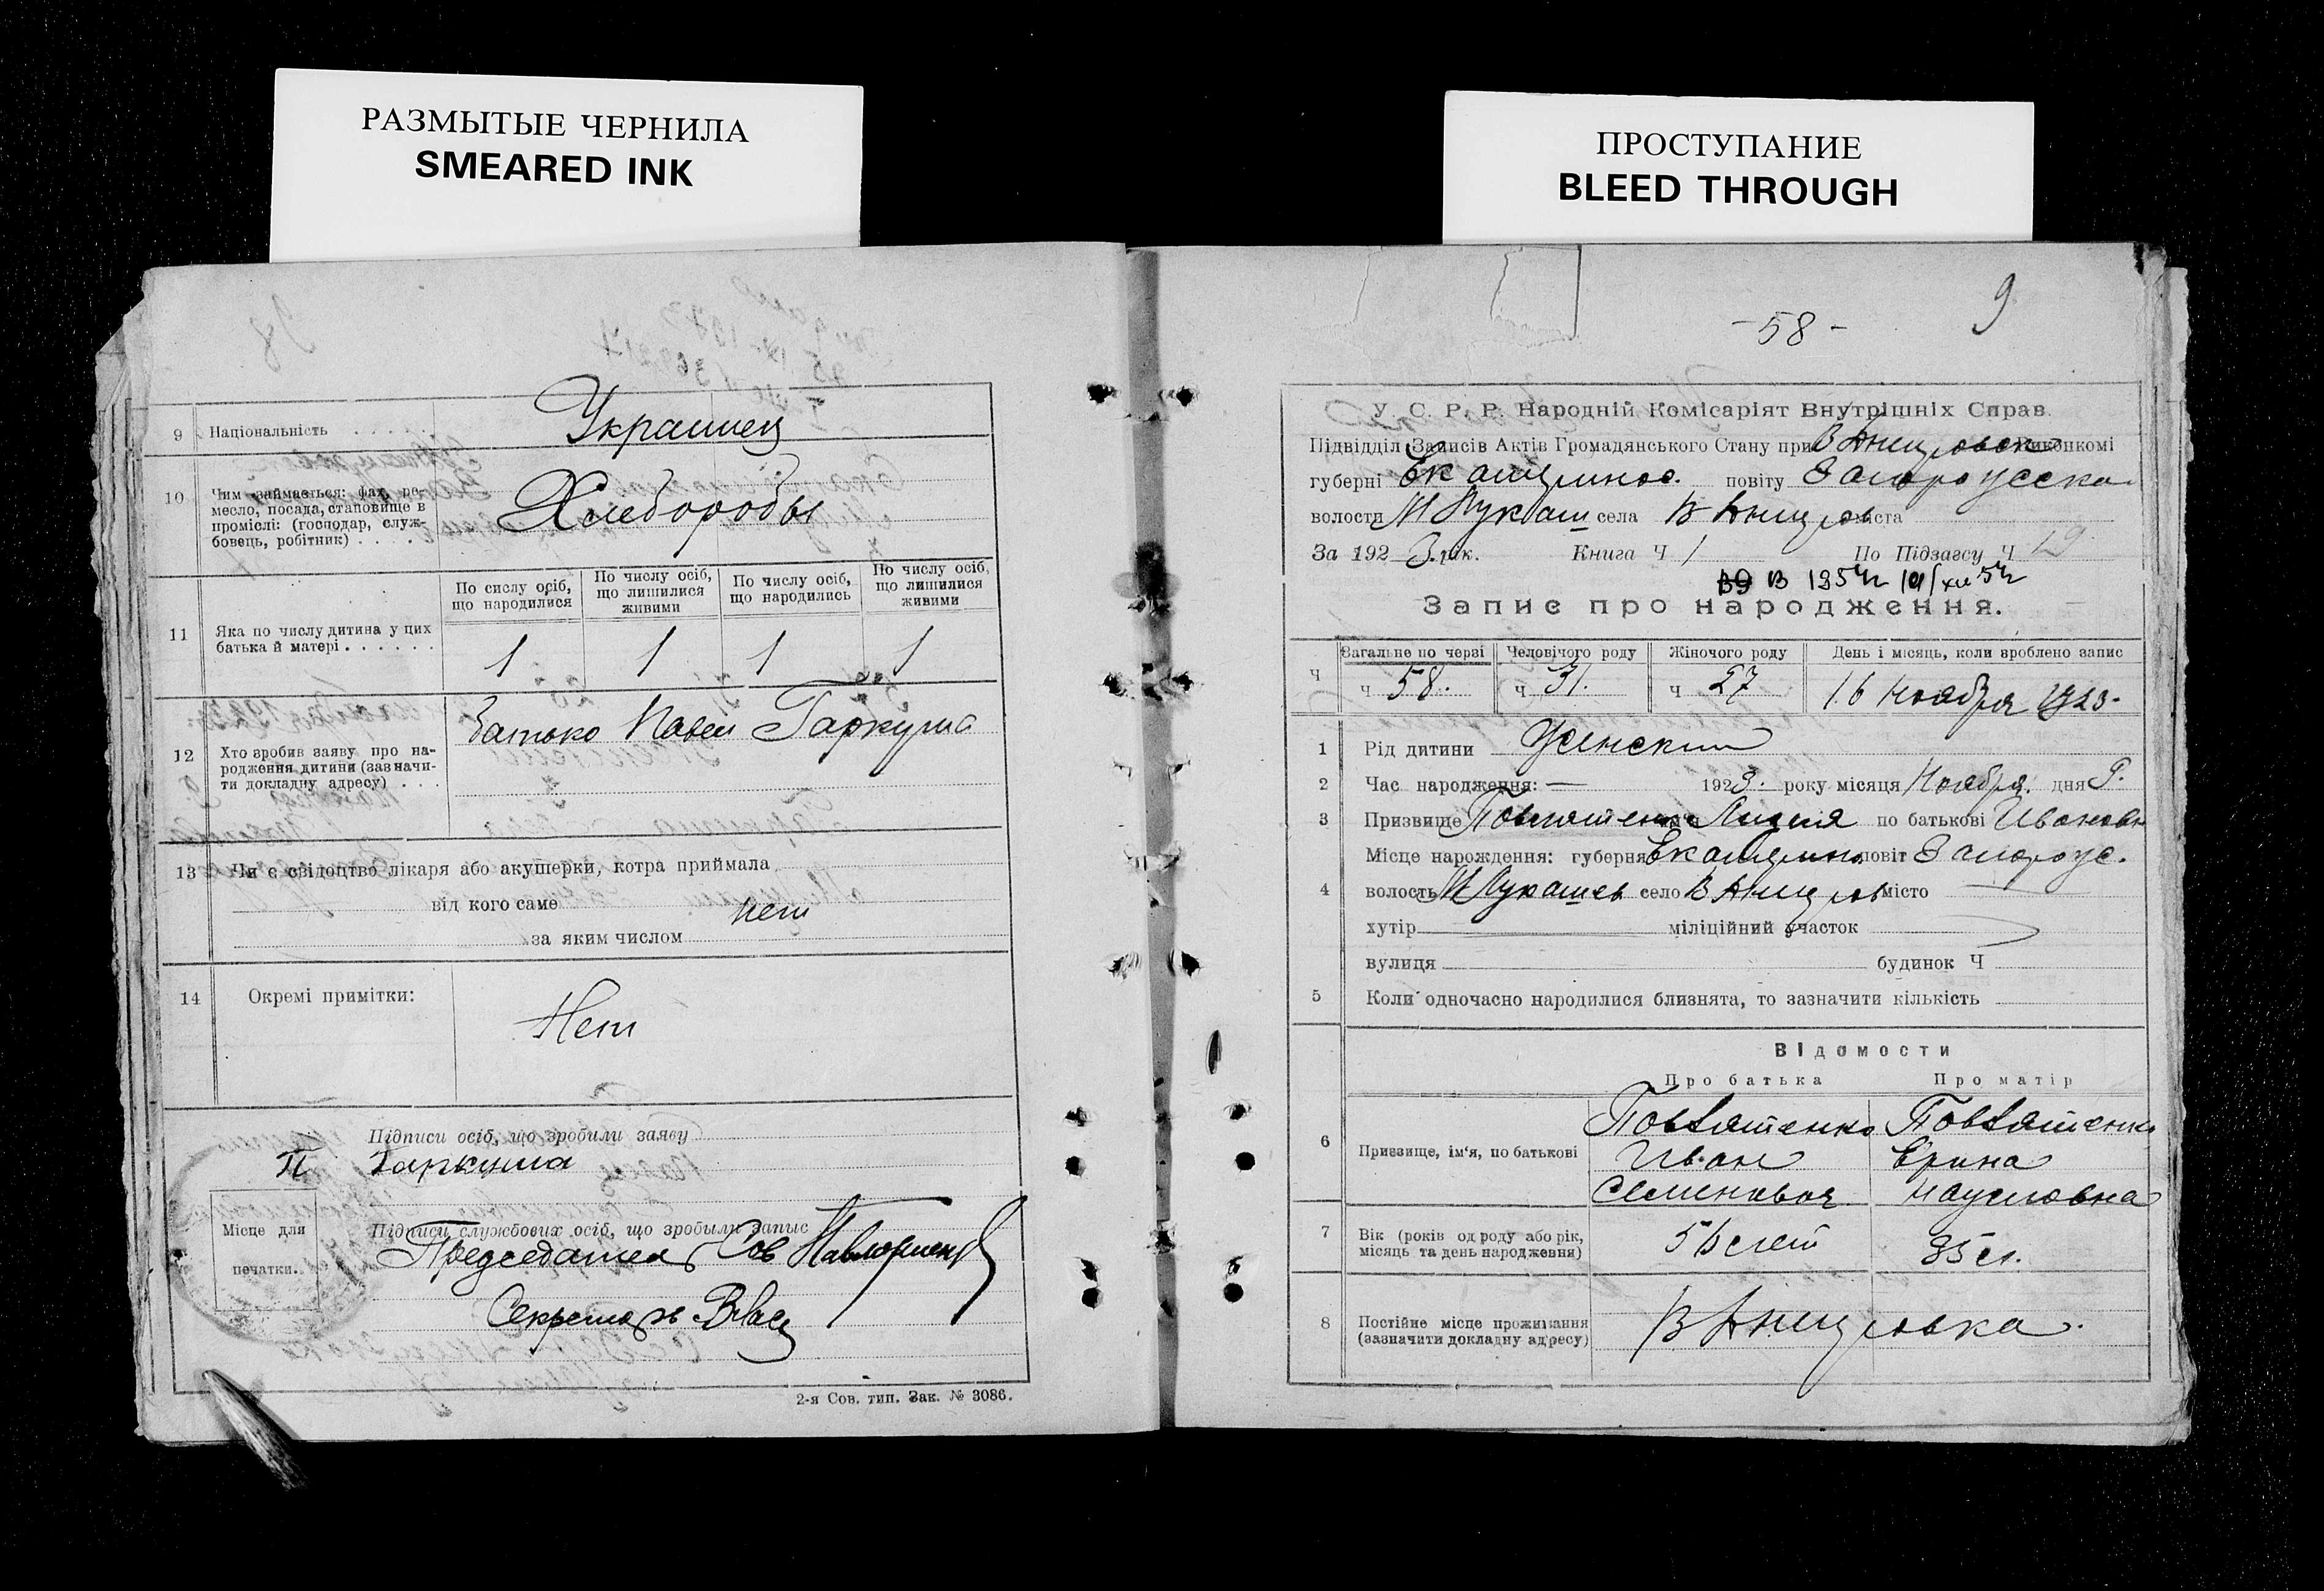 РАЗМЫТЫЕ ЧЕРНИЛА
SMEARED INK
9 Національність . . . . . Украинец
10 Чим займається: фах, ре-
месло, посада, становище в
проміслі: (господар, служ-
бовець, робітник) . . . .
Хлеборобы
По сислу осіб, що народилися
По числу осіб, що лишилися живими
По числу осіб, що народились
По числу осіб, що лишилися живими
11 Яка по числу дитина у цих
батька й матері . . . . . .
1 1 1 1
12 Хто зробив заяву про на-
родження дитини (зазначи-
ти докладну адресу) . . .
Батько Павел Гаркуша
13 Чи є свідоцтво лікаря або акушерки, котра приймала
від кого саме нет
за яким числом
14 Окремі примітки:
Нет
Підписи осіб, що зробили заяву
П Гаркуша
Місце для
печатки.
Підписи службових осіб, що зробыли запыс
Председатель Сов
Секретарь
2-я Сов. тип. Зак. № 3086.
ПРОСТУПАНИЕ
BLEED THROUGH
9
- 58 -
У. С. Р. Р. Народній Комісаріят Внутрішніх Справ.
Підвідділ Записів Актів Громадянського Стану при В Анцуровск виконкомі
губерні Екатеринос. повіту Запорожска
волости М Лукаш села В Анцуров міста
За 192 3 рік. Книга Ч 1 По Підзагсу Ч 19
Запис про народження.
Загальне по черзі Человічого роду Жіночого роду День і місяць, коли зроблено запис
Ч ч 58. ч 31. ч 27 16 Ноября 1923.
1 Рід дитини Женский
2 Час народження: — 192 3. року місяця Ноября. дня 9.
3 Призвище Повшатенко Лидия по батькові Ивановн
4 Місце народження: губерня Екатерино повіт Запорож.
волость М Лукашев село В Анцуров місто
хутір міліційний участок
вулиця будинок Ч
5 Коли одночасно народилися близнята, то зазначити кількість
Відомости
Про батька Про матір
6 Призвище, ім'я, по батькові
Повшатенко Иван Семенович
Повшатенко Ерина Наумовна
7 Вік (років од роду або рік,
місяць та день народження)
лет 35 л.
8 Постійне місце проживання
(зазначити докладну адресу)
В Анцуровка.